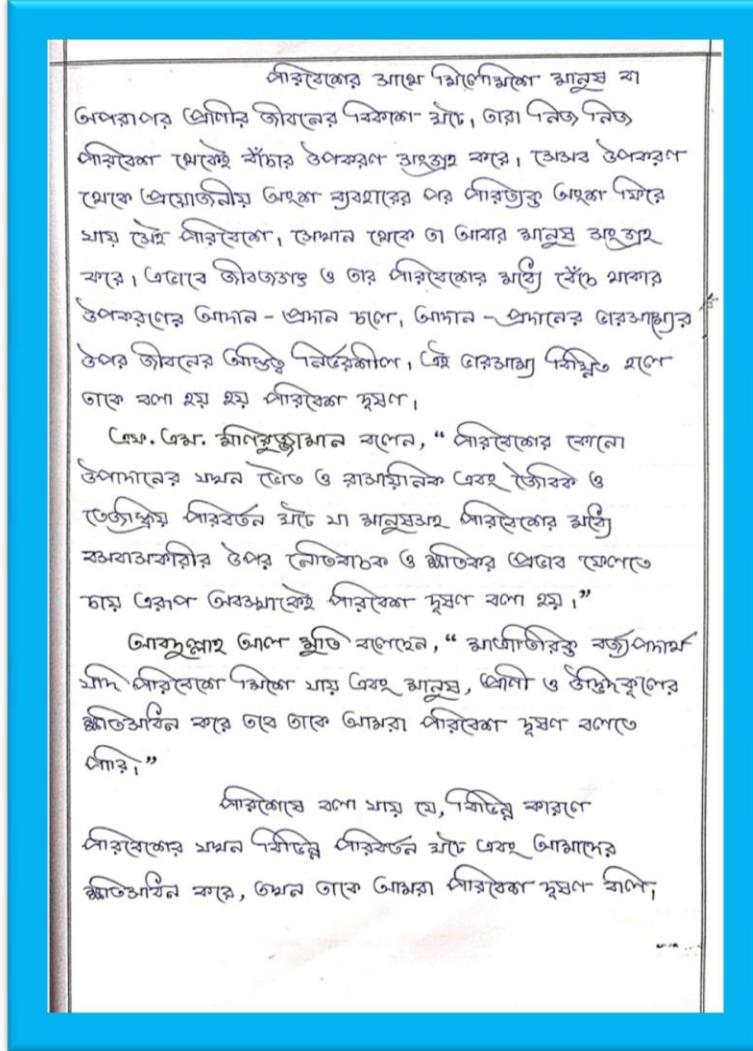 পরিবেশের সাথে মিলেমিশে মানুষ বা
অপরাপর প্রাণীর জীবনের বিকাশ ঘটে। তারা নিজ নিজ
পরিবেশ থেকেই বাঁচার উপকরণ সংগ্রহ করে। সেসব উপকরণ
থেকে প্রয়োজনীয় অংশ ব্যবহারের পর পরিত্যক্ত অংশ ফিরে
যায় সেই পরিবেশে। সেখান থেকে তা আবার মানুষ সংগ্রহ
করে। এভাবে জীবজগৎ ও তার পরিবেশের মধ্যে বেঁচে থাকার
উপকরণের আদান - প্রদান চলে। আদান - প্রদানের ভারসাম্যের
উপর জীবনের অস্তিত্ব নির্ভরশীল। এই ভারসাম্য বিঘ্নিত হলে
তাকে বলা হয় হয় পরিবেশ দূষণ।
এফ. এম. মনিরুজ্জামান বলেন, “ পরিবেশের কোনো
উপাদানের যখন ভৌত ও রাসায়নিক এবং জৈবিক ও
তেজস্ক্রিয় পরিবর্তন ঘটে যা মানুষসহ পরিবেশের মধ্যে
বসবাসকারীর উপর নেতিবাচক ও ক্ষতিকর প্রভাব ফেলতে
চায় এরূপ অবস্থাকেই পরিবেশ দূষণ বলা হয়।”
আবদুল্লাহ আল মুতি বলেছেন, “ মাত্রাতিরিক্ত বর্জ্যপদার্থ
যদি পরিবেশে মিশে যায় এবং মানুষ, প্রাণী ও উদ্ভিদকূলের
ক্ষতিসাধন করে তবে তাকে আমরা পরিবেশ দূষণ বলতে
পারি।”
পরিশেষে বলা যায় যে, বিভিন্ন কারণে
পরিবেশের যখন বিভিন্ন পরিবর্তন ঘটে এবং আমাদের
ক্ষতিসাধন করে, তখন তাকে আমরা পরিবেশ দূষণ বলি।